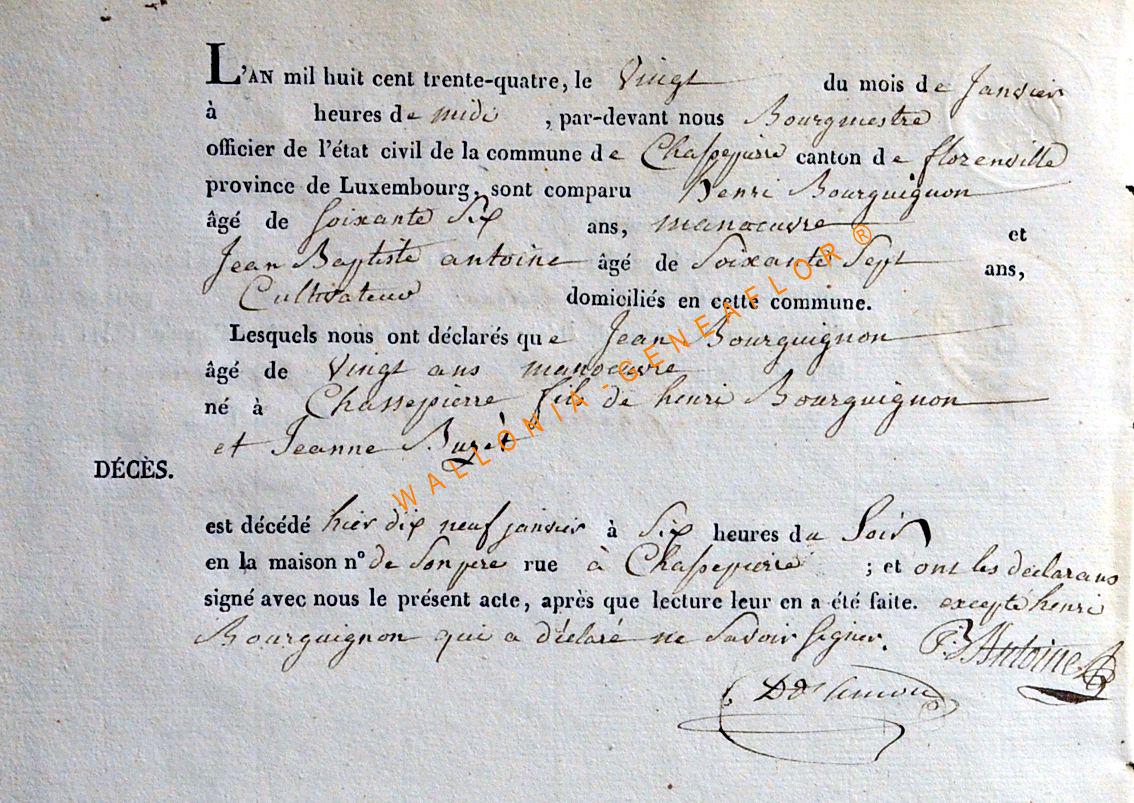 L'AN mil huit cent trente-quatre, le Vingt du mois de Janvier
à heures de midi , par-devant nous Bourgmestre
officier de l'état civil de la commune de Chassepierre canton de florenville
province de Luxembourg, sont comparu henri Bourguignon
âgé de soixante Six ans, manoeuvre et
Jean Baptiste antoine âgé de Soixante Sept ans,
Cultivateur domiciliés en cette commune.
Lesquels nous ont déclarés que Jean Bourguignon
âgé de Vingt ans manoeuvre
né à Chassepierre fils de henri Bourguignon
et Jeanne Buzet
DÉCÈS.
est décédé hier dix neuf janvier à Six heures du Soir
en la maison n° de Son pere rue à Chassepierre ; et ont les déclarans
signé avec nous le présent acte, après que lecture leur en a été faite. excepté henri
Bourguignon qui a déclaré ne Savoir Signer. Antoine
WALLONIA-GENEAFLOR ®